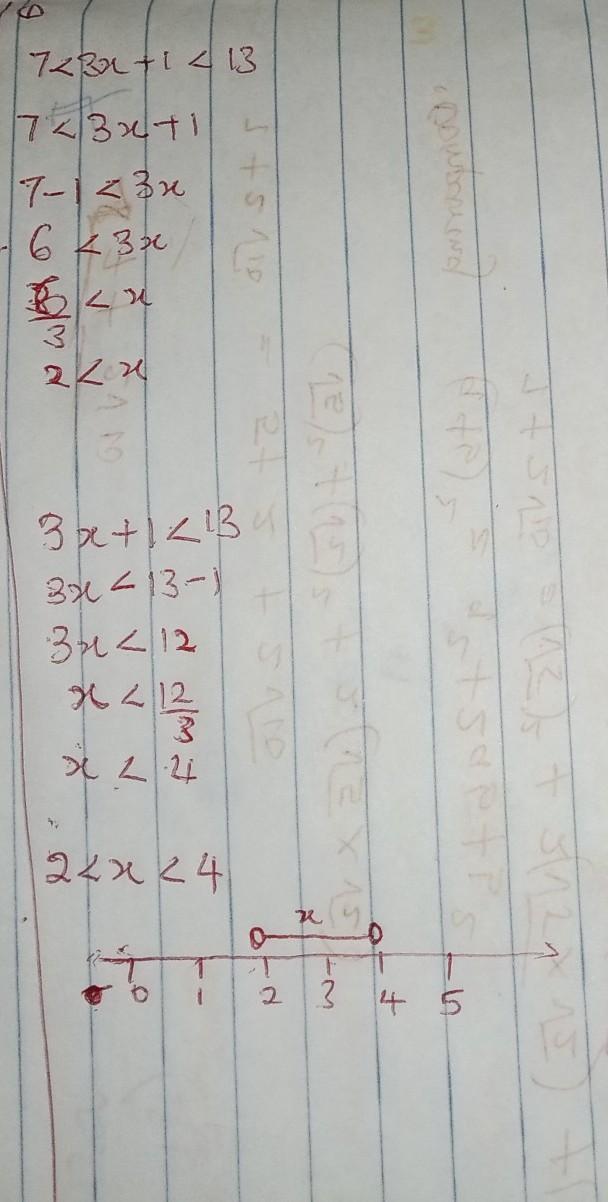 7<3x+1 < 13
7 < 3x+1
7-1 < 3x
6 < 3x
6/3 < x
2 < x
3x+1<13
3x < 13-1
3x < 12
x < 12/3
x < 4
2<x<4
x
0 1 2 3 4 5